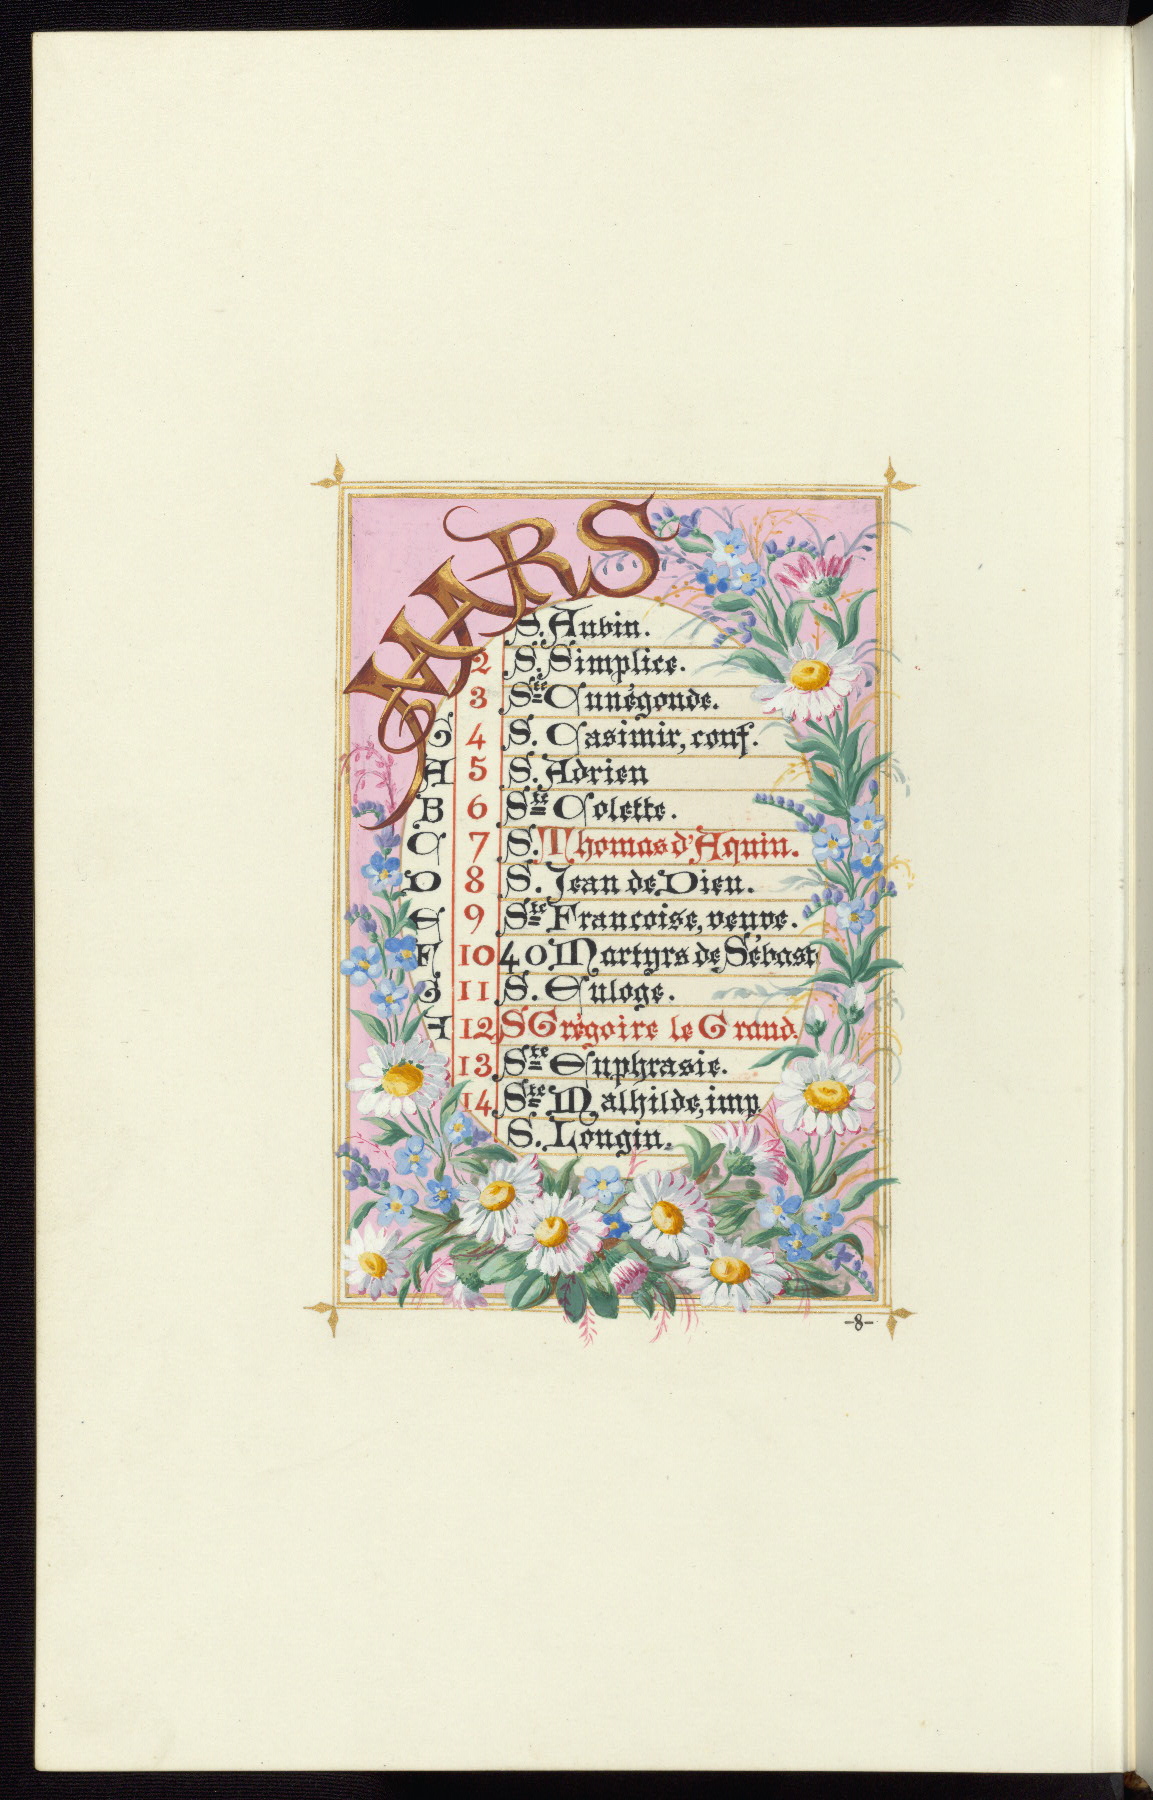 MARS
S. Aubin.
2 S. Simplice.
3 Ste Cunégonde.
G 4 S. Casimir, conf.
A 5 S. Adrien
B 6 Ste Colette.
C 7 S. Thomas d'Aquin.
D 8 S. Jean de Dieu.
E 9 Ste Francoise, veuve.
F 10 40 Martyrs de Sébast
G 11 S. Euloge.
A 12 S Grégoire le Grand.
13 Ste Euphrasie.
14 Ste Mathilde, imp.
S. Longin.
-8-